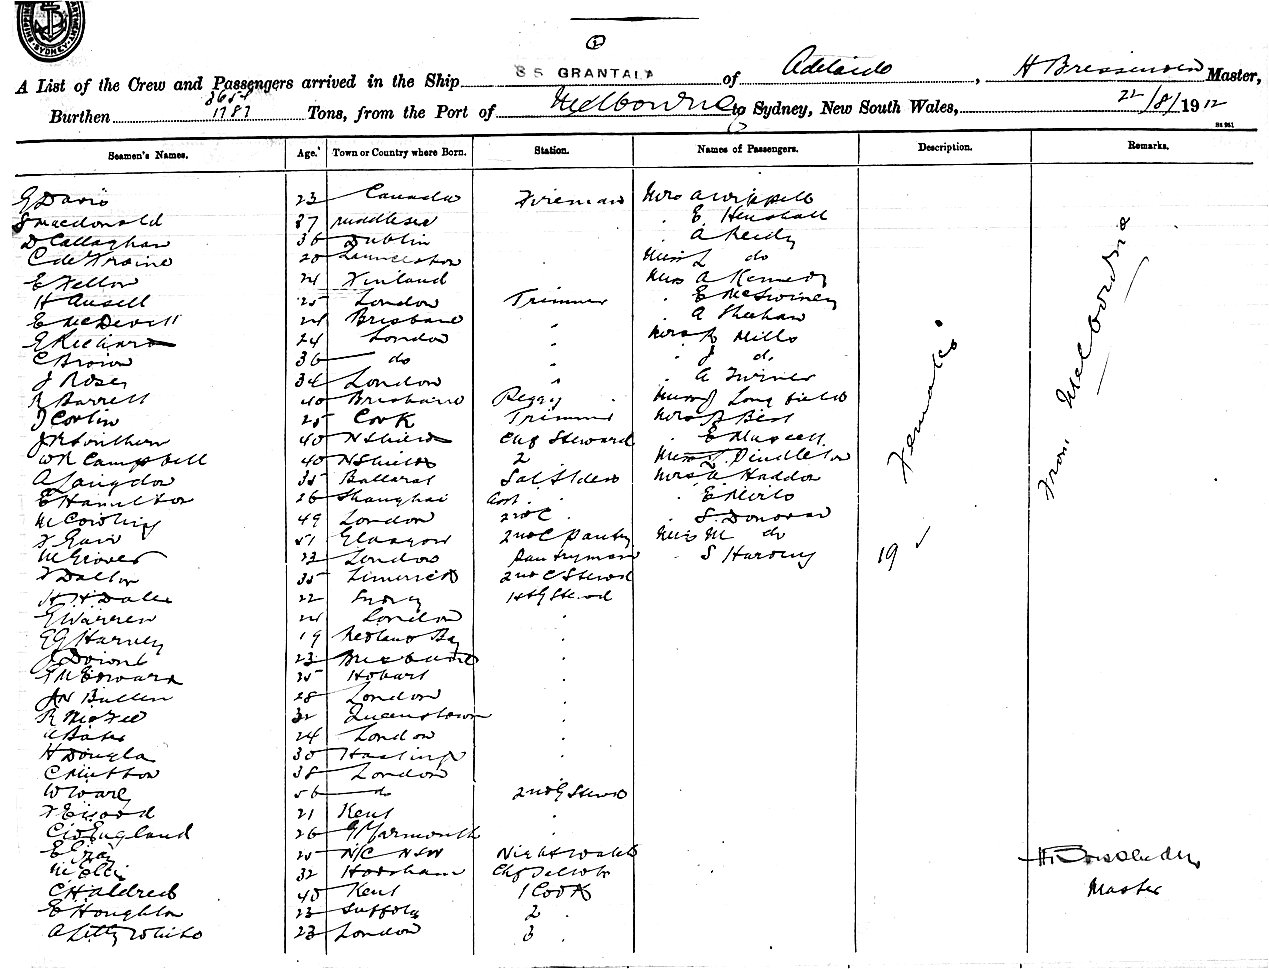 SYDNEY
2
SS GRANTALA
A List of the Crew and Passengers arrived in the Ship of Adelaide, H Master,
3654
Burthen 1787 Tons, from the Port of Melbourne to Sydney, New South Wales, 22/8/1912
Seamen's Names. Age. Town or Country where Born. Station. Names of Passengers. Description. Remarks.
G Davis 23 Canada Fireman Mrs A
S Macdonald 37 Middlesex . E Henshall
D Callaghan 36 Dublin . A Reidy
20 Launceston Miss L do
E Fellow 24 Finland Miss A Kennedy
H Ansell 25 London Trimmer . E McSwiney
E McDevitt 24 Brisbane A Sheehan
E Richards 24 London Mrs Mills
C Brown 36 do . J do
J Roser 34 London . A Turner
R Barrett 40 Brisbane Peggy Miss J Longfield
25 Cook Trimmer Mrs Best
J R Southern 40 N Shields Chf Steward . E
W R Campbell 40 N Shields 2 Miss Pindleton
A Langdon 35 Ballarat Sal Mrs A Haddon
E Hamilton 26 Shanghai Asst .
M Cowling 49 London 2nd C . S. Donovan
51 Glasgow 2nd C Pantry Miss M do
M Glover 23 London Pantryman . S Hardney
F Dalton 35 Limerick 2nd C Stewd
H H Dale 22 1st G Stewd
G Warren 24 London .
E G Harvey 19 Redland Bay .
23 Brisbane .
25 Hobart .
J N Bullen 28 London .
R McFee 32 Queenstown .
Bates 24 London .
H Douglas 30 Hastings .
C Mutton 38 London
W Ware 56 do 2nd G Stewd
F E Wood 21 Kent
C W England 26 G Yarmouth .
E Gray 25 N/C NSW Nightwatch
M Ellis 32 Horsham Chf
C H Aldred 40 Kent 1 Cook
E Houghton 23 Suffolk 2
A Littlewhite 23 London 3
Females
19
From Melbourne
H
Master